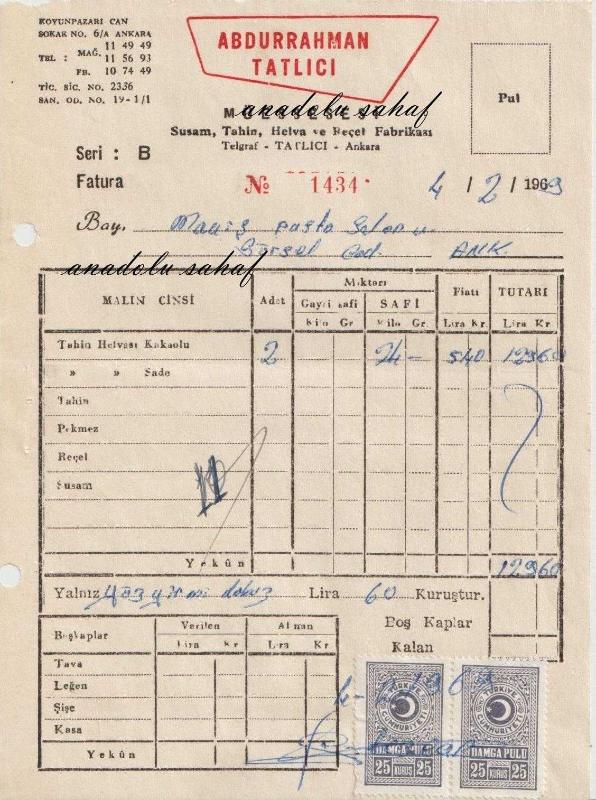 KOYUNPAZARI CAN
SOKAK NO. 6/A ANKARA
TEL : MAĞ. 11 49 49
11 56 93
FB. 10 74 49
TİC. SİC. NO. 2336
SAN. OD. NO. 19-1/1
ABDURRAHMAN
TATLICI
Pul
anadolu sahaf
Susam, Tahin, Helva ve Reçel Fabrikası
Telgraf - TATLICI - Ankara
Seri : B
Fatura № 1434 4 / 2 / 1969
Bay, pasta Salonu
Cad. ANK.
anadolu sahaf
MALIN CİNSİ Adet Miktarı Fiatı TUTARI
Gayri safi SAFİ
Kilo Gr. Kilo Gr. Lira Kr. Lira Kr
Tahin Helvası Kakaolu 2 24 - 540 12960
» » Sade
Tahin
Pekmez
Reçel
Susam
Yekûn 12960
Yalnız yüzyirmi dokuz Lira 60 Kuruştur.
Boş Kaplar
Kalan
Boşkaplar Verilen Alınan
Lira Kr Lira Kr.
Tava
Leğen
Şişe
Kasa
Yekûn
4-2-1969
TÜRKİYE CUMHURİYETİ
DAMGA PULU
25 KURUŞ 25
TÜRKİYE CUMHURİYETİ
DAMGA PULU
25 KURUŞ 25